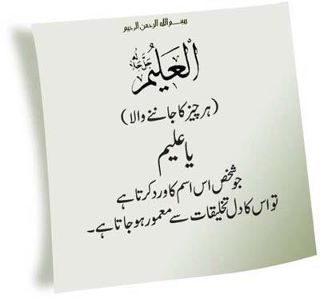 بسم الله الرحمن الرحيم
اَلْعَلِيْمُ جل جلالہ
(ہر چیز کا جاننے والا)
یا علیم
جو شخص اس اسم کا ورد کرتا ہے
تو اس کا دل تخلیقات سے معمور ہو جاتا ہے۔